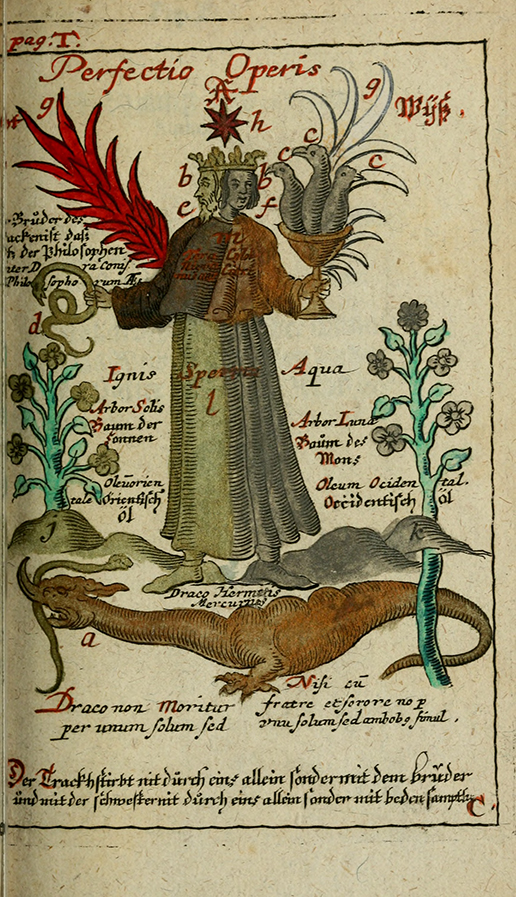 pag: T.
Perfectio Operis
A
g
h
g
Wÿß.
b
b
c
c
c
e
f
Brůder des
ackenist daß
der Philosophen
Draconis
Philosophorum
d
m
Ignis
Sperma
Aqua
l
Arbor Solis
Baum der
Sonnen
Arbor Lunæ
Baum des
Mons
Oleŭorien
tale Orientisch
öl
Oleum Ociden tal.
Occidentisch öl
j
k
Draco Hermetis
Mercurius
a
Draco non Moritur
per unum solum sed
Nisi cū
fratre et sorore no p
solum sed ambobo simul.
Der Trackh stirbt nit dŭrch eins allein sonder mit dem brŭder
ŭnd mit der schwester nit dŭrch eins allein sonder mit beden sampth
C.